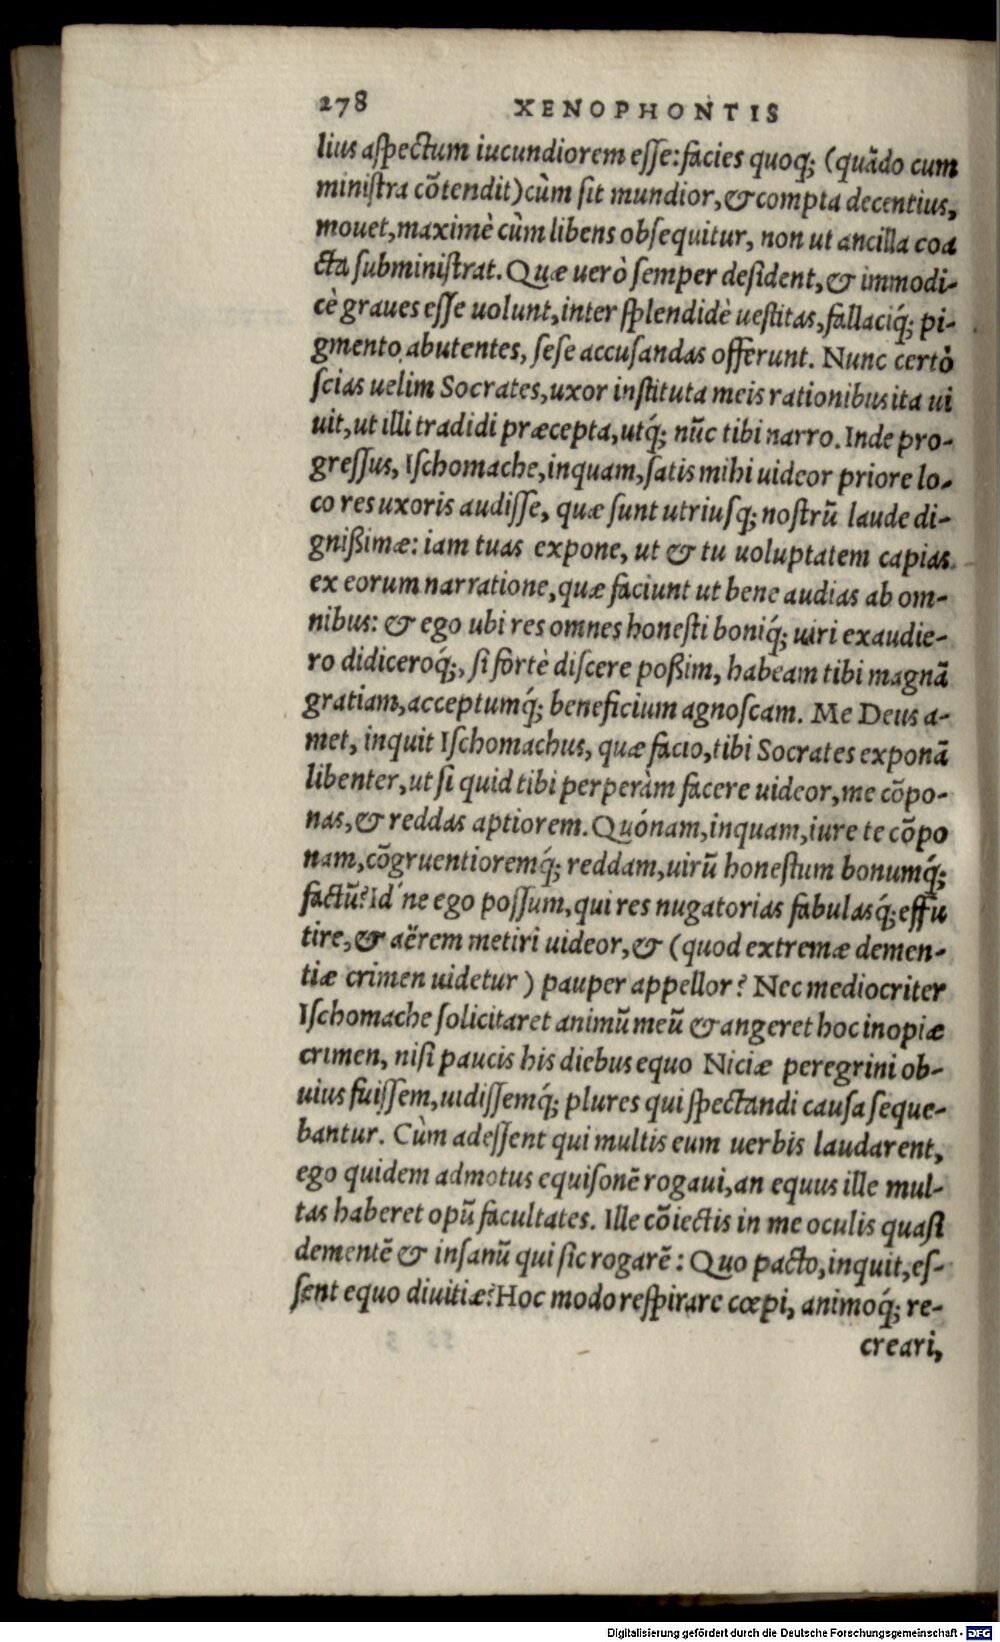 278 XENOPHONTIS
lius aſpectum iucundiorem eſſe: facies quoq; (quãdo cum
miniſtra cõtendit) cùm ſit mundior, & compta decentius,
mouet, maximè cùm libens obſequitur, non ut ancilla coa
cta ſubminiſtrat. Quæ uerò ſemper deſident, & immodi-
cè graues eſſe uolunt, inter ſplendidè ueſtitas, fallaciq́; pi-
gmento abutentes, ſeſe accuſandas offerunt. Nunc certò
ſcias uelim Socrates, uxor inſtituta meis rationibus ita ui
uit, ut illi tradidi præcepta, utq́; nũc tibi narro. Inde pro-
greſſus, Iſchomache, inquam, ſatis mihi uideor priore lo-
co res uxoris audiſſe, quæ ſunt utriuſq; noſtrũ laude di-
gnißimæ: iam tuas expone, ut & tu uoluptatem capias
ex eorum narratione, quæ faciunt ut bene audias ab om-
nibus: & ego ubi res omnes honeſti boniq́; uiri exaudie-
ro didiceroq́;, ſi fortè diſcere poßim, habeam tibi magnã
gratiam, acceptumq́; beneficium agnoſcam. Me Deus a-
met, inquit Iſchomachus, quæ facio, tibi Socrates exponã
libenter, ut ſi quid tibi perperàm facere uideor, me cõpo-
nas, & reddas aptiorem. Quónam, inquam, iure te cõpo
nam, cõgruentioremq́; reddam, uirũ honeſtum bonumq́;
factũ? Id' ne ego poſſum, qui res nugatorias fabulasq́; effu
tire, & aërem metiri uideor, & (quod extremæ demen-
tiæ crimen uidetur) pauper appellor? Nec mediocriter
Iſchomache ſolicitaret animũ meũ & angeret hoc inopiæ
crimen, niſi paucis his diebus equo Niciæ peregrini ob-
uius fuiſſem, uidiſſemq́; plures qui ſpectandi cauſa ſeque-
bantur. Cùm adeſſent qui multis eum uerbis laudarent,
ego quidem admotus equiſonẽ rogaui, an equus ille mul-
tas haberet opũ facultates. Ille cõiectis in me oculis quaſi
dementẽ & inſanũ qui ſic rogarẽ: Quo pacto, inquit, eſ-
ſent equo diuitiæ? Hoc modo reſpirare cœpi, animoq́; re-
creari,
Digitalisierung gefördert durch die Deutsche Forschungsgemeinschaft - DFG